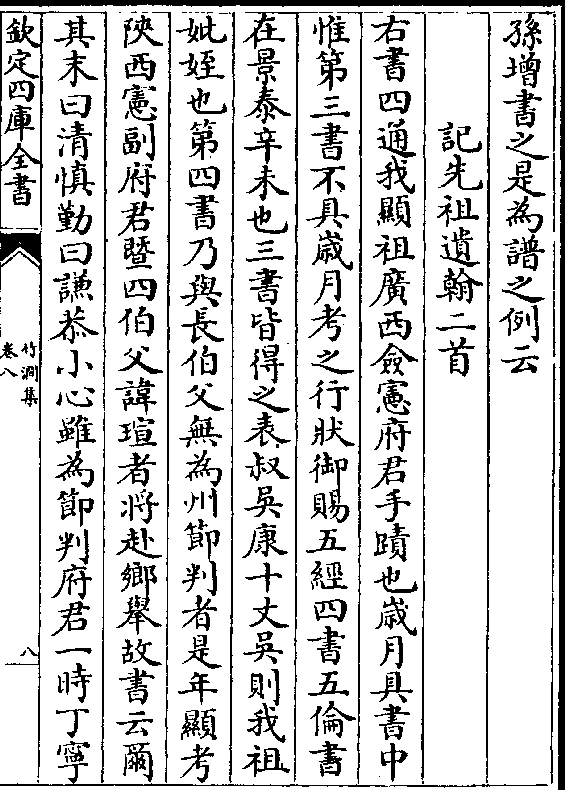 孫增書之是為譜之例云
記先祖遺翰二首
右書四通我顯祖廣西僉憲府君手蹟也歳月具書中
惟第三書不具歳月考之行狀御賜五經四書五倫書
在景泰辛未也三書皆得之表叔吳康十丈吳則我祖
妣姪也第四書乃與長伯父無為州節判者是年顯考
陜西憲副府君暨四伯父諱瑄者將赴鄉舉故書云爾
其末曰清慎勤曰謙恭小心雖為節判府君一時丁寧
欽定四庫全書
竹澗集
卷八
八